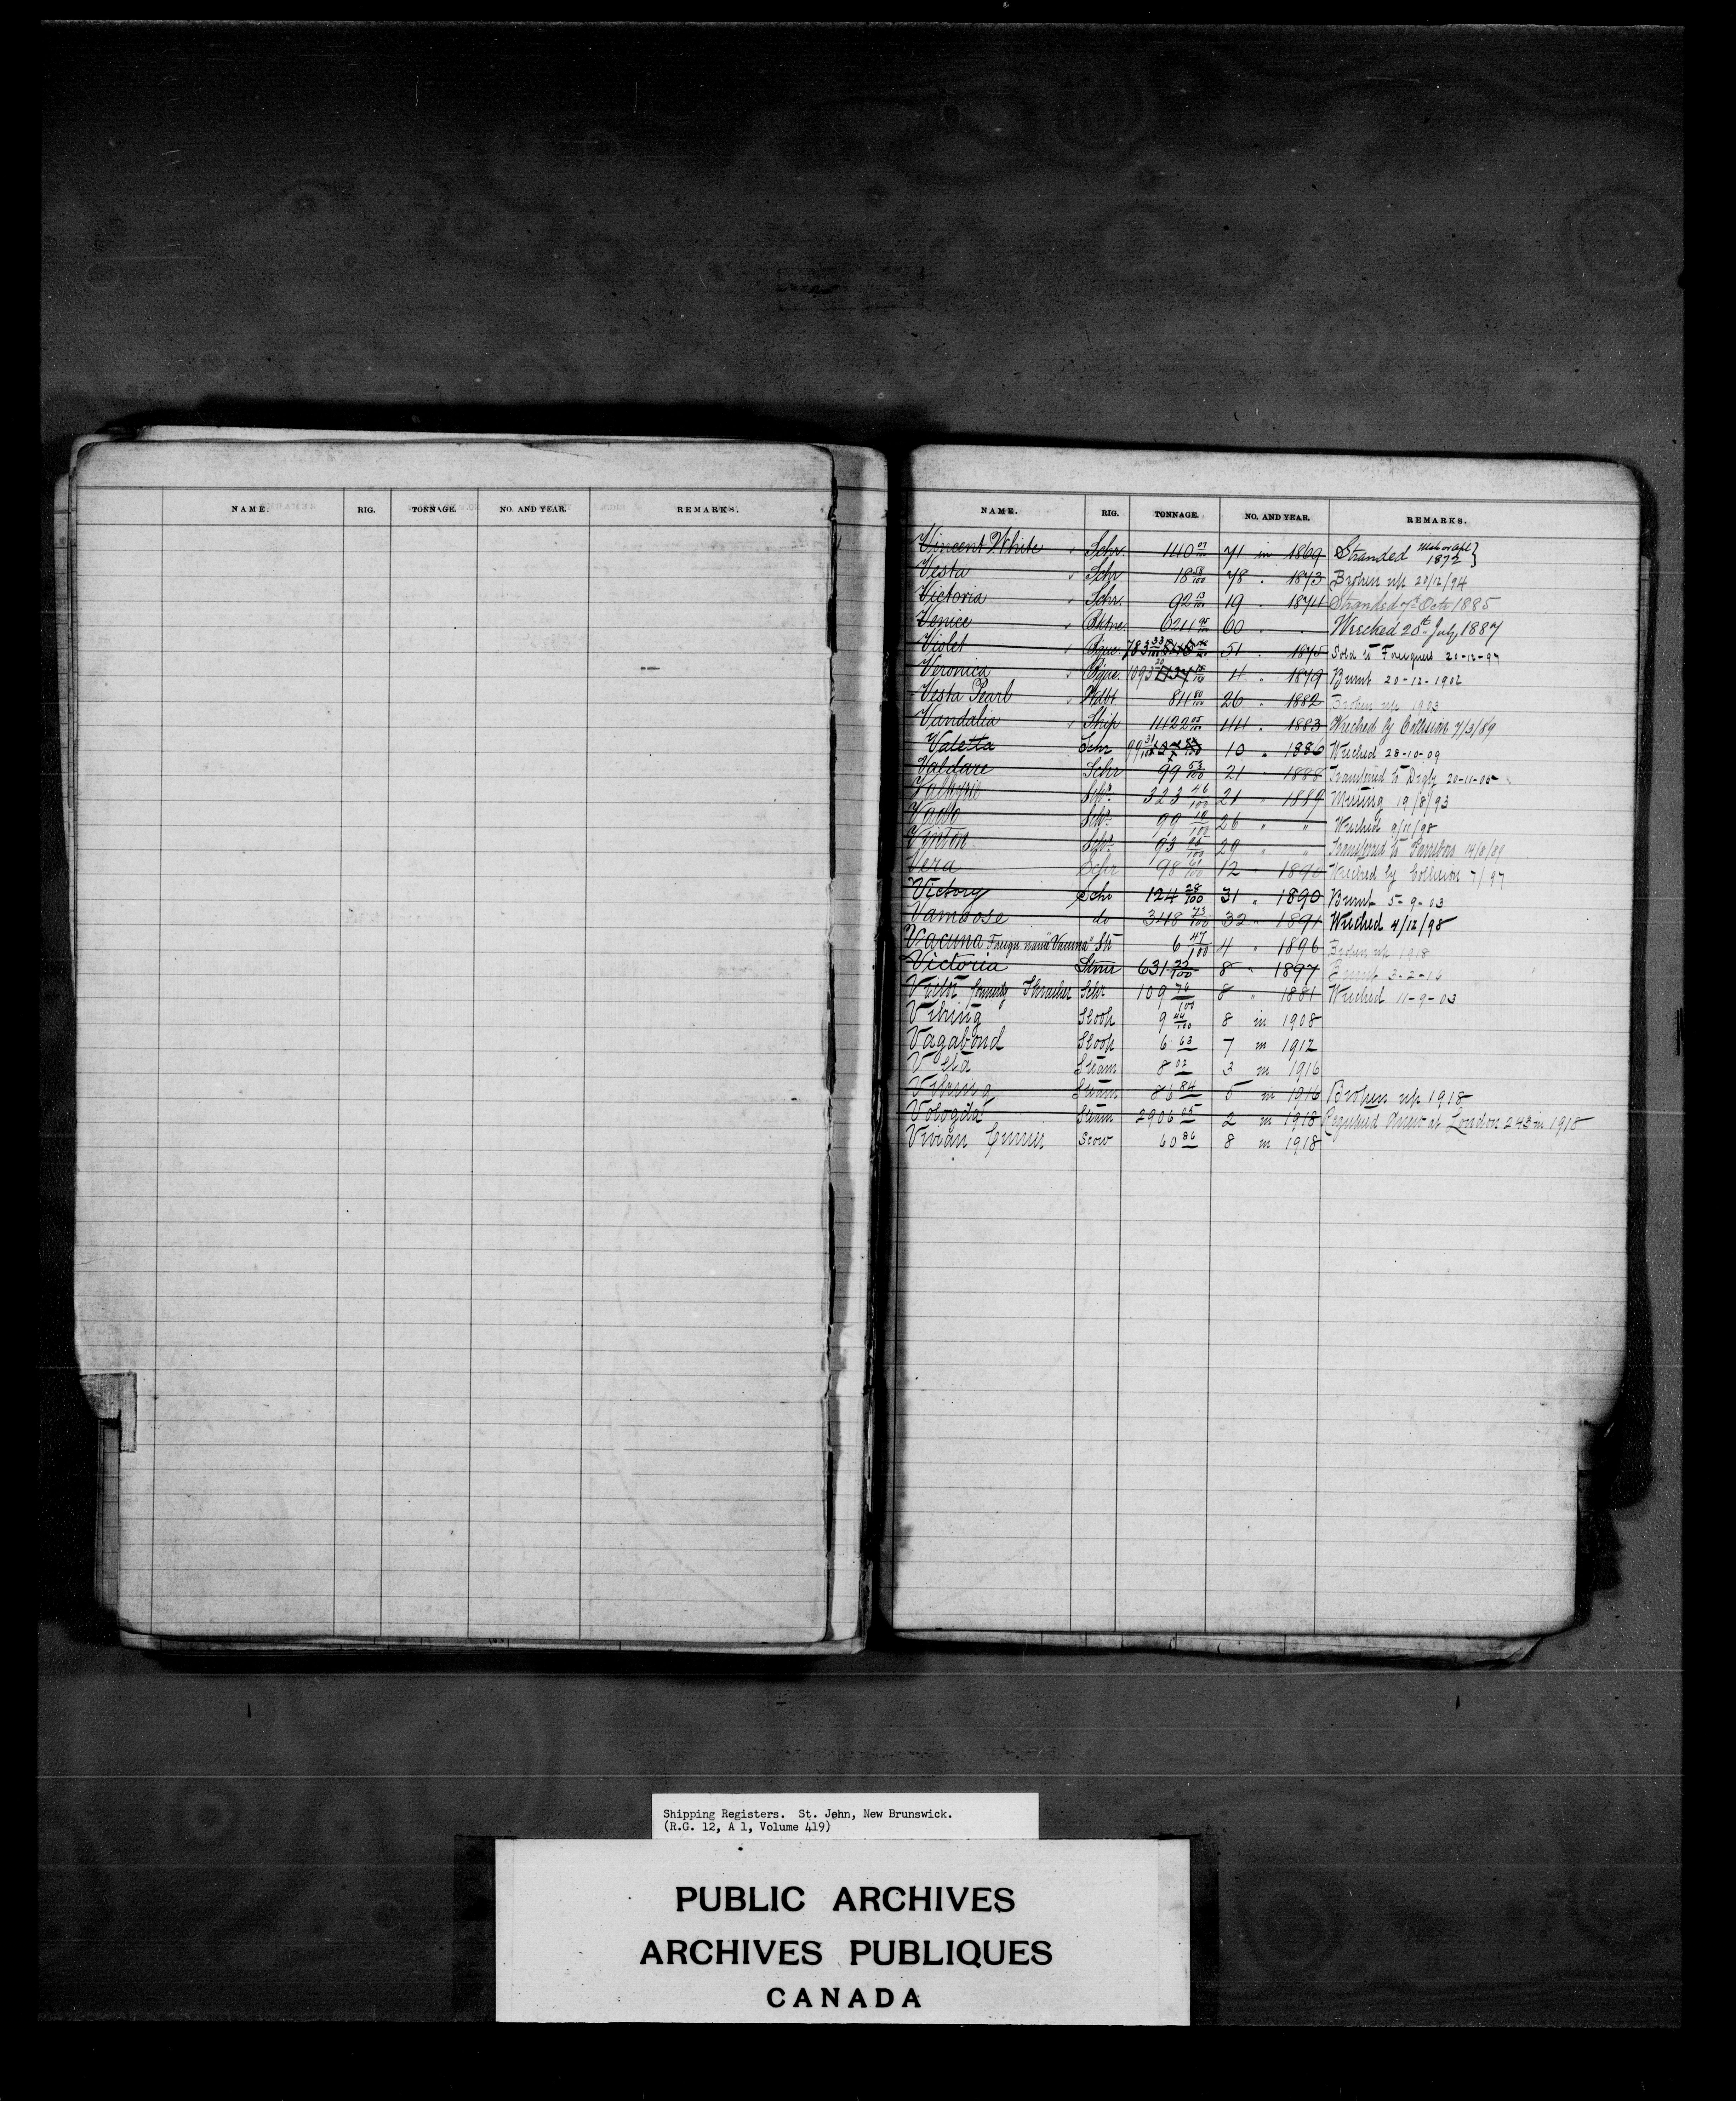 NAME. RIG. TONNAGE. NO. AND YEAR. REMARKS.
NAME. RIG. TONNAGE. NO. AND YEAR. REMARKS.
Vincent White Schr. 140 07/100 71 in 1869 Stranded Mch or Apl 1872 }
Vesta Schr 18 58/100 78 " 1873 Broken up 20/12/94
Victoria Schr. 92 13/100 19 " 1874 Stranded 7th Octr 1885
Venice Bktne. 60 " " Wrecked 20th July 1887
Violet Bque. 783 33/100 51 " 1875 Sold to Foreigners 20-12-97
Veronica Bque. 1093 20/100 1137 11 " 1879 Burnt 20-12-1902
Vesta Pearl Wdbt 26 " 1882 Broken up 1903
Vandalia Ship 1422 05/100 44 " 1883 Wrecked by Collision 7/3/89
Valetta Schr 99 31/100 10 " 1886 Wrecked 28-10-09
Valdare Schr 99 53/100 21 " 1888 Transferred to Digby 20-11-05
Valkyrie Schr. 323 46/100 21 " 1889 Missing 19/8/93
Schr. 90 10/100 26 " " Wrecked 9/11/98
Vinton Schr. 93 20 " " Transferred to Parrsboro
Vera Schr 98 61/100 12 " 1890 Wrecked by Collision 7/97
Victory Schr 124 28/100 31 " 1890 Burnt 5-9-03
Vamoose do 348 73/100 32 " 1891 Wrecked 4/12/98
Vacuna Foreign name "Vacuna" Str 6 47/100 4 " 1896 Broken up 1918
Victoria Stmr 631 33/100 8 " 1897 Burnt 3-2-16
formerly Thrasher Schr. 109 76/100 8 " 1881 Wrecked 11-9-03
Viking Sloop 9 44/100 8 in 1908
Vagabond Sloop 6 63 7 in 1912
Steam 8 02 3 in 1916
Viking Steam 86 84 5 in 1916 Broken up 1918
Vologda Steam 2906 05 2 in 1918 Registered Anew at London 243 in 1918
Vivian Scow 60 86 8 in 1918
Shipping Registers. St. John, New Brunswick.
(R.G. 12, A 1, Volume 419)
PUBLIC ARCHIVES
ARCHIVES PUBLIQUES
CANADA